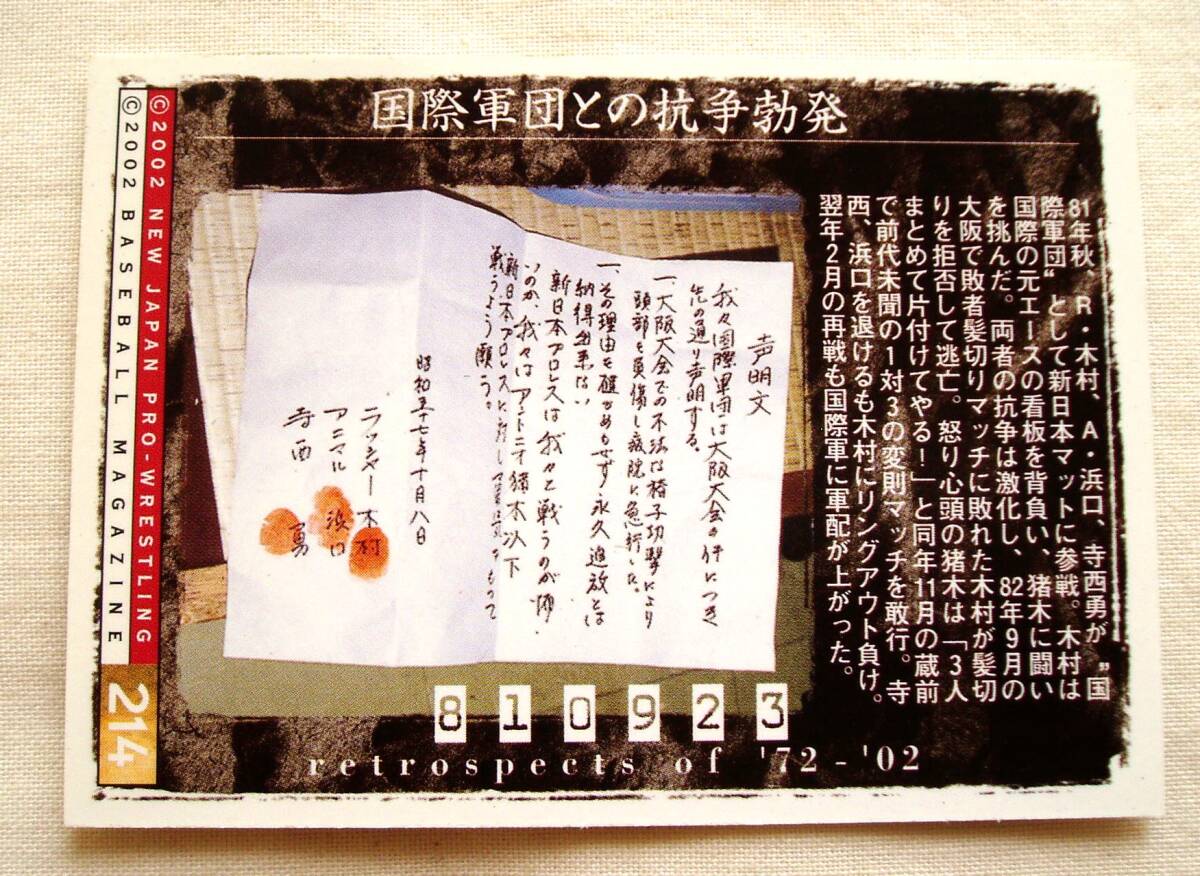 国際軍団との抗争勃発
81年秋、R・木村、A・浜口、寺西勇が〝国
際軍団〟として新日本マットに参戦。木村は
国際の元エースの看板を背負い、猪木に闘い
を挑んだ。両者の抗争は激化し、82年9月の
大阪で敗者髪切りマッチに敗れた木村が髪切
りを拒否して逃亡。怒り心頭の猪木は「3人
まとめて片付けてやる！」と同年11月の蔵前
で前代未聞の1対3の変則マッチを敢行。寺
西、浜口を退けるも木村にリングアウト負け。
翌年2月の再戦も国際軍に軍配が上がった。
声明文
我々国際軍団は大阪大会の件につき
先の通り声明する。
一、大阪大会での不法な椅子攻撃により
頭部を負傷し病院に急行した。
一、その理由を確かめもせず永久追放とは
納得出来ない
新日本プロレスは我々と戦うのが怖
いのか、我々はアントニオ猪木以下
新日本プロレスに対し もって
戦うよう願う。
昭和五十七年十月八日
ラッシャー木村
アニマル浜口
寺西勇
810923
retrospects of '72-'02
©2002 NEW JAPAN PRO-WRESTLING
©2002 BASEBALL MAGAZINE
214